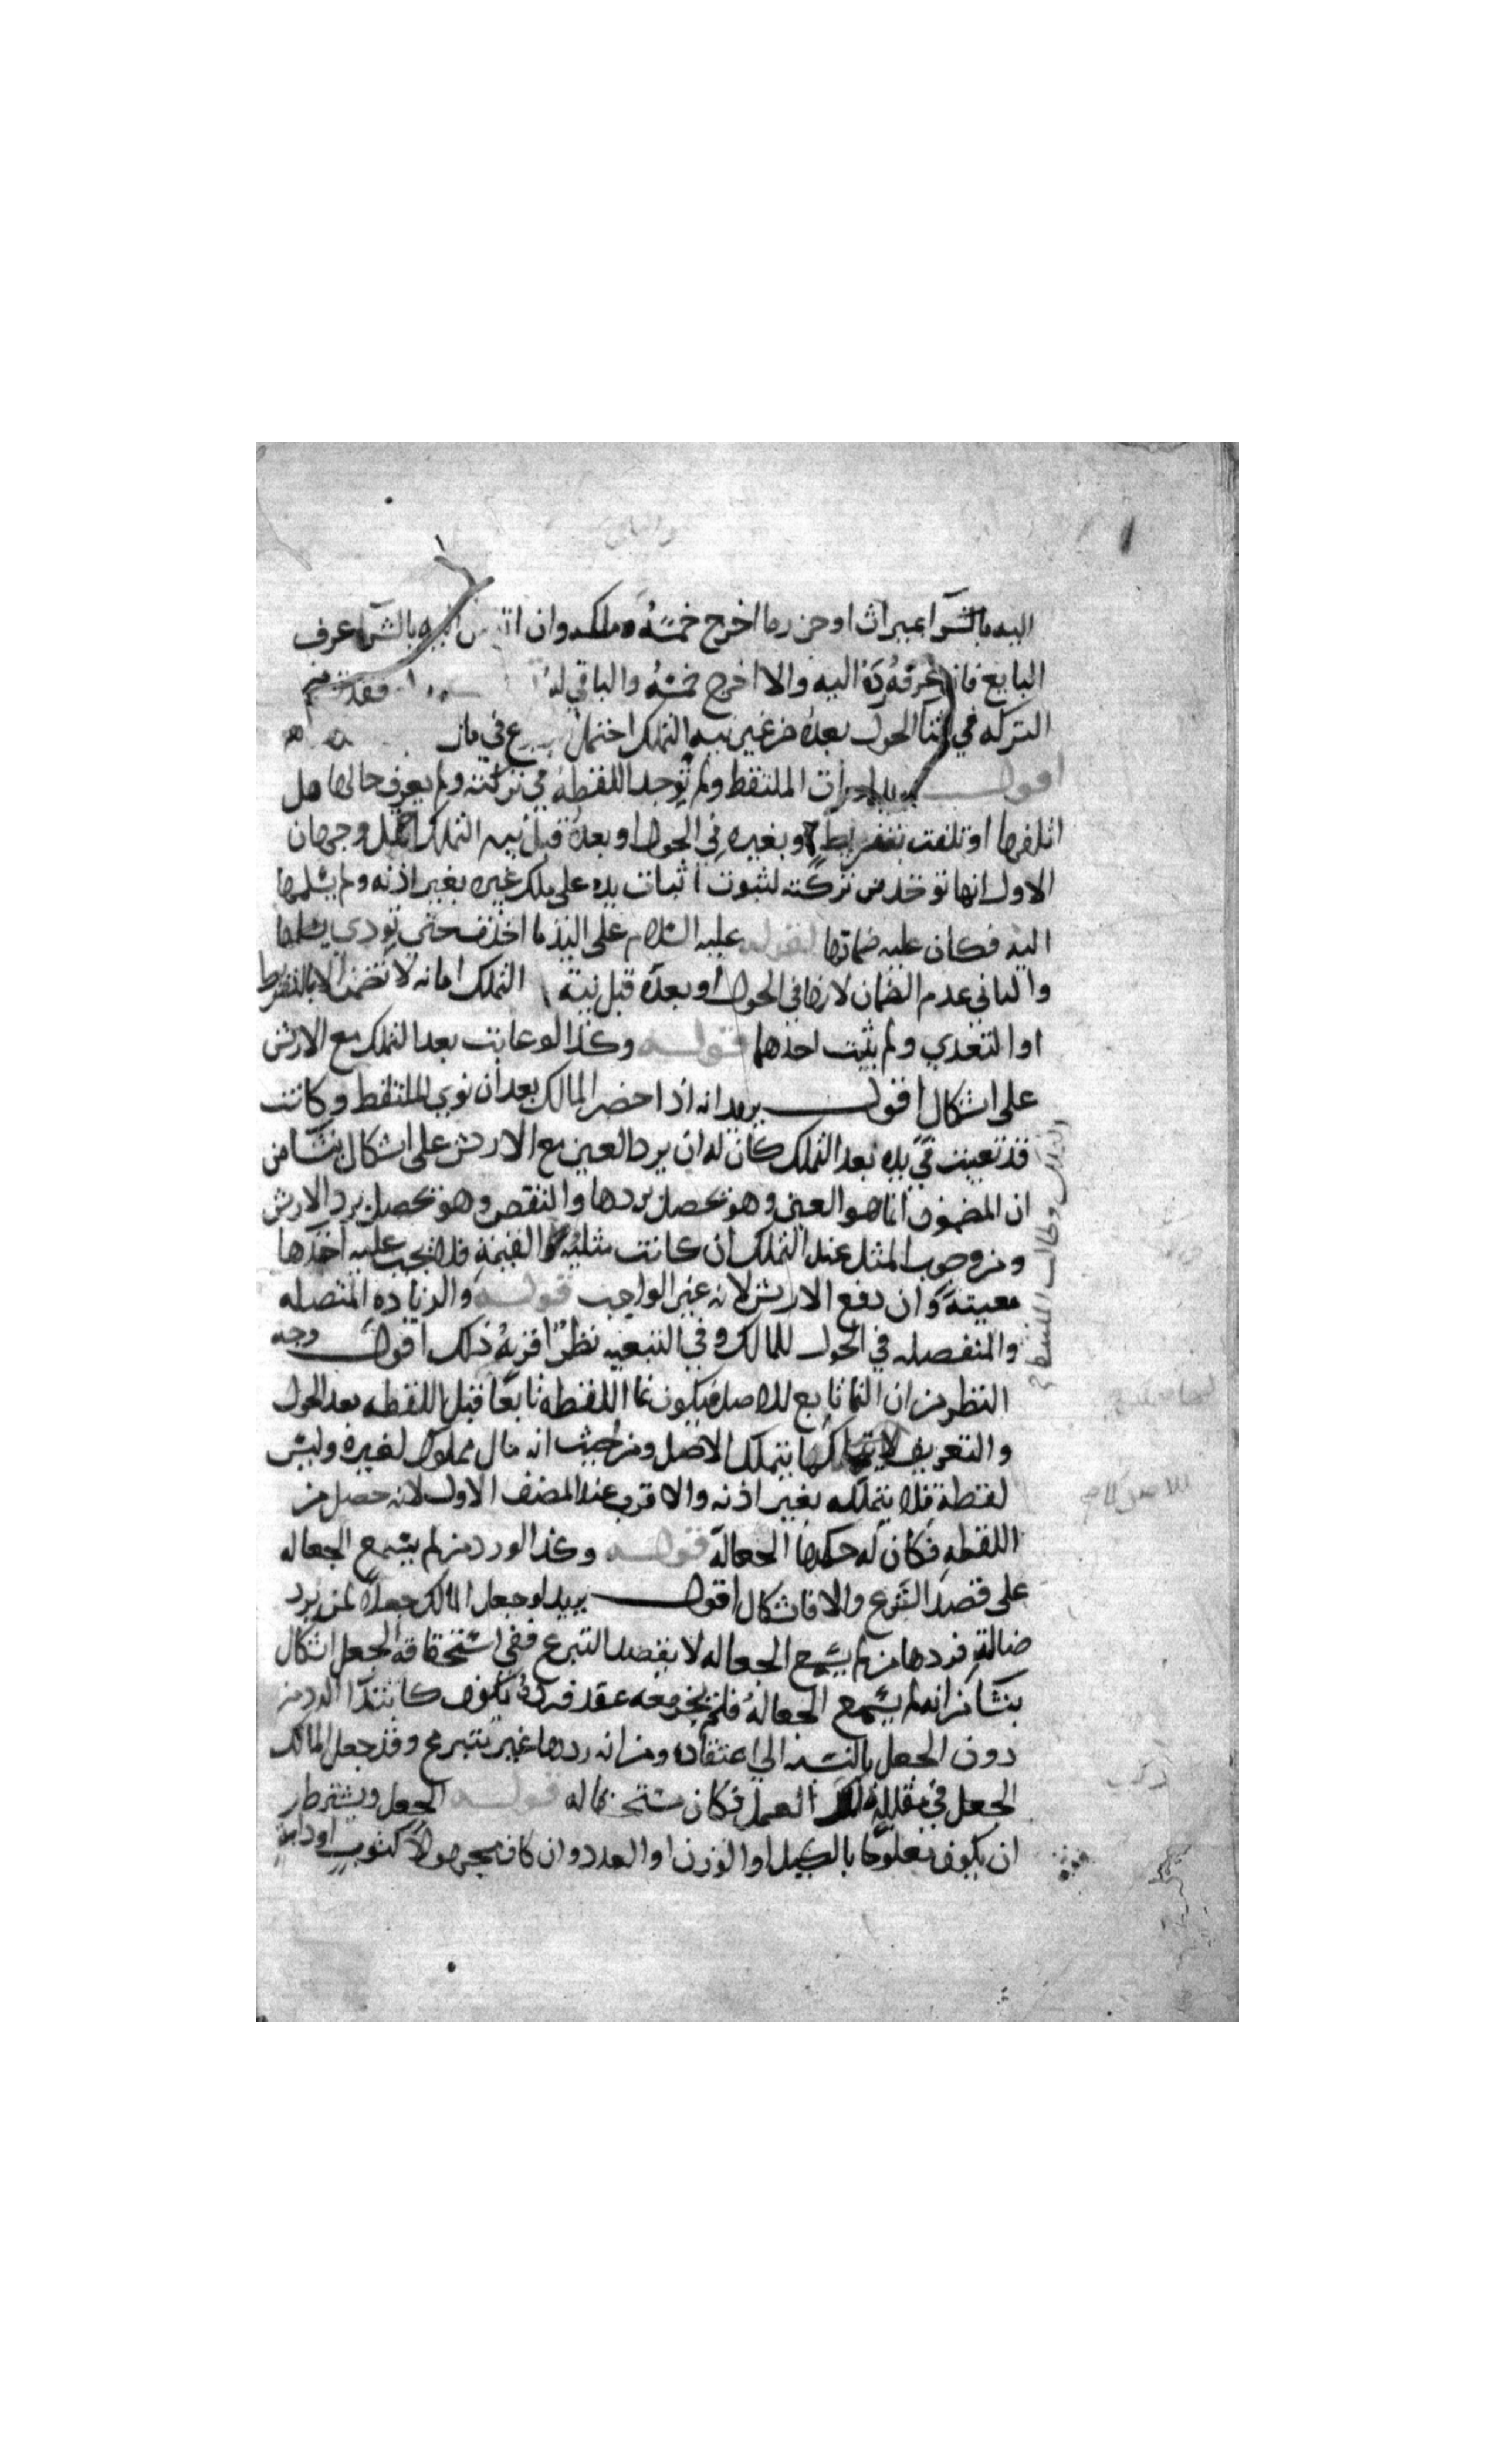 اليه بالشرا اوميراث او حن رما اخرج خمسه وملكه وان انتقل اليه بالشرا عرف
البايع فان عرفه رده اليه والا اخرج خمسه والباقي له فقدت من
التركه في اثنا الحول بعده من غير نيه التملك احتمل في مال
اقول يريد اذا مات الملتقط ولم توجد اللقطه في تركته ولم يعرف حالها هل
اتلفها او تلفت بتفريط او بغيره في الحول او بعده قبل نيه التملك احتمل وجهان
الاول انها توخذ من تركته لثبوت اثبات يده على ملك غيره بغير اذنه ولم يسلمها
اليه فكان عليه ضمانها لقوله عليه السلام على اليد ما اخذت حتى تودي
والثاني عدم الضمان لانها في الحول او بعده قبل نيته التملك امانه لا تضمن الا بالتفريط
او التعدي ولم يثبت احدهما قوله وكذا لو عابت بعد التملك مع الارش
على اشكال اقول يريد انه اذا حضر المالك بعد ان نوى الملتقط وكانت
قد تعيبت في يده بعد التملك كان له ان يرد العين مع الارش على اشكال ينشا من
ان المضمون انما هو العين وهو يحصل بردها والنقص وهو يحصل برد الارش
ومن وجوب المثل عند التملك ان كانت مثليه او القيمه فلا يجب عليه اخذها
معيبة وان دفع الارش لانه غير الواجب قوله والزياده المتصله
والمنفصله في الحول للمالك وفي التبعيه نظر اقربه ذلك اقول وجه
النظر من ان النما تابع للاصل فيكون نما اللقطه تابعا قبل اللقطه بعد الحول
والتعريف لا يتملكها بتملك الاصل ومن حيث انه مال مملوك لغيره وليس
لقطة فلا يتملكه بغير اذنه والاقرب عند المصنف الاول لانه حصل من
اللقطه فكان له حكمها الجعاله قوله وكذا لو رد من لم يسمع الجعاله
على قصد التبرع والا فاشكال اقول يريد لو جعل المالك جعلا لمن يرد
ضالة فردها من لم يسمع الجعاله لا بقصد التبرع ففي استحقاقه الجعل اشكال
ينشا من انه لم يسمع الجعالة فلم يجز معه عقد فرده يكون كابتدا الرد من
دون الجعل بالنسبه الى اعتقاده ومن انه ردها غير متبرع وقد جعل المالك
الجعل في مقابله العمل فكان مستحقا له قوله الجعل ويشترط
ان يكون معلوما بالكيل او الوزن او العدد وان كان مجهولا كثوب او دابة
التملك وطالب الملتقط
للاصل كما مر